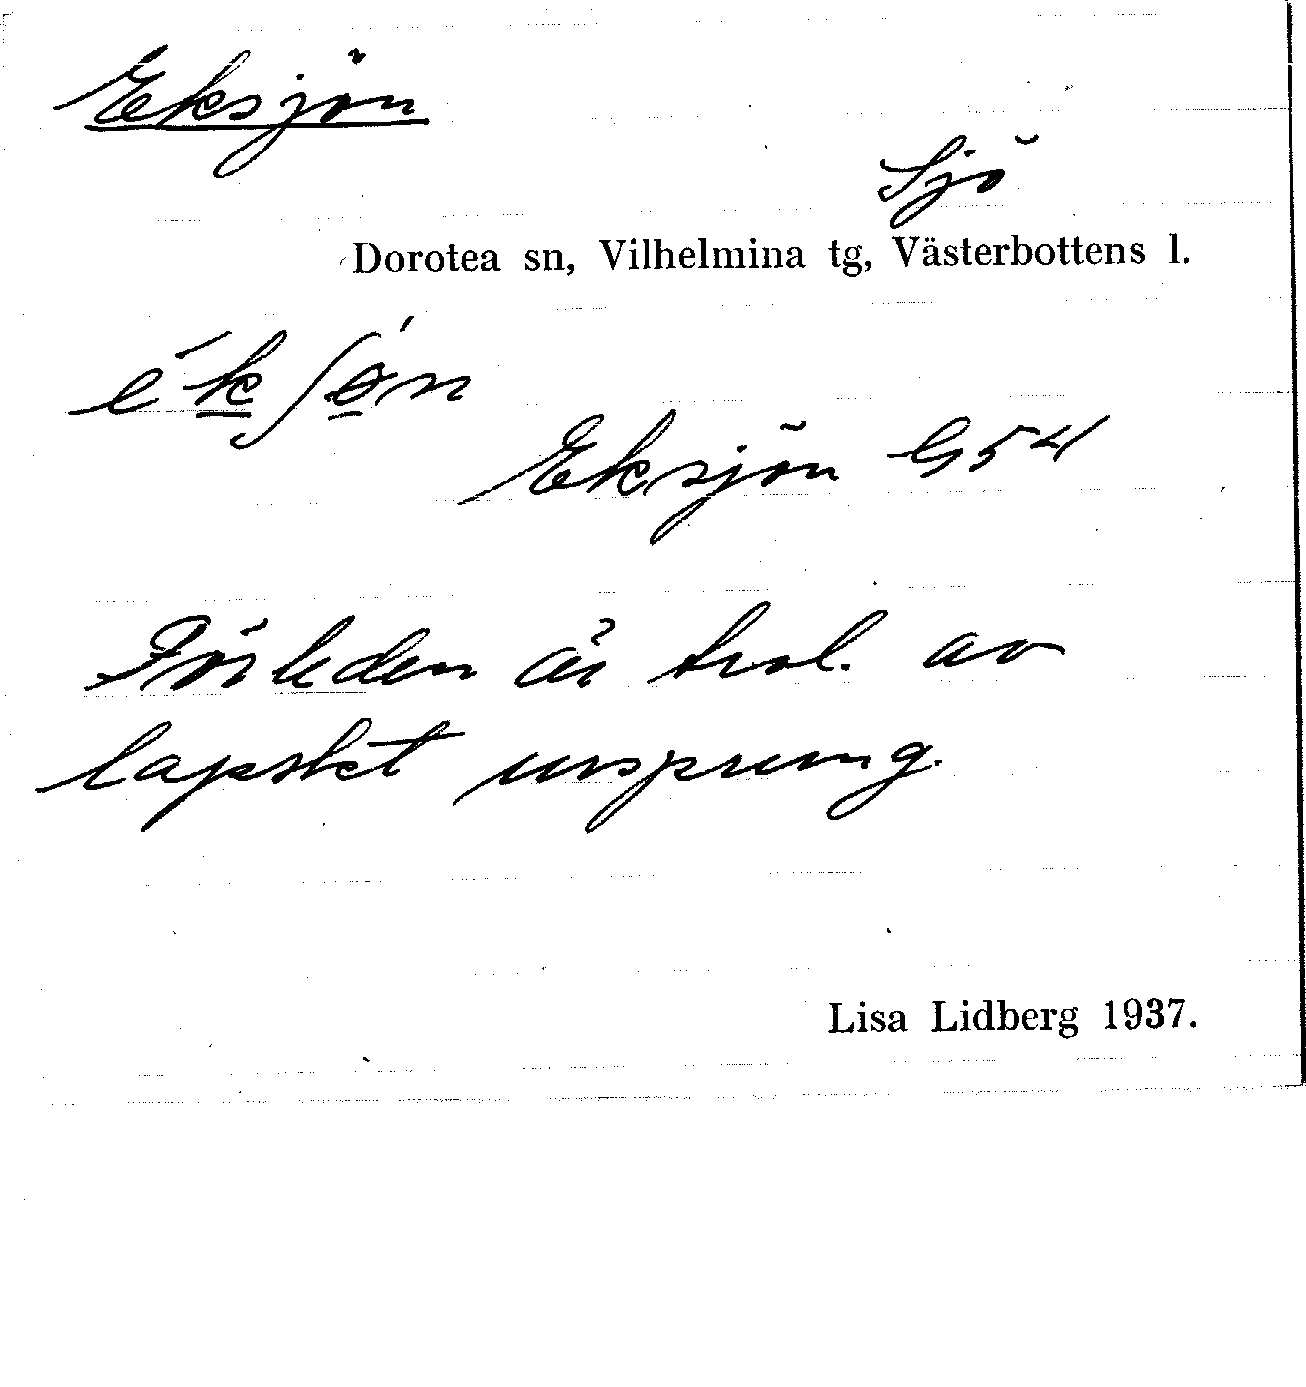 Eksjön
Sjö
Dorotea sn, Vilhelmina tg, Västerbottens l.
é k ʃ ø´ n
Eksjön G54
Förleden är trol. av
lapskt ursprung.
Lisa Lidberg 1937.